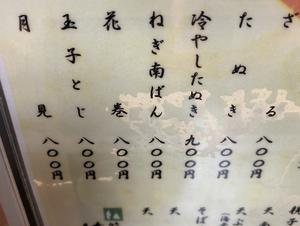 ざる 八〇〇円
たぬき 八〇〇円
冷やしたぬき 九〇〇円
ねぎ南ばん 八〇〇円
花巻 八〇〇円
玉子とじ 八〇〇円
月見 八〇〇円